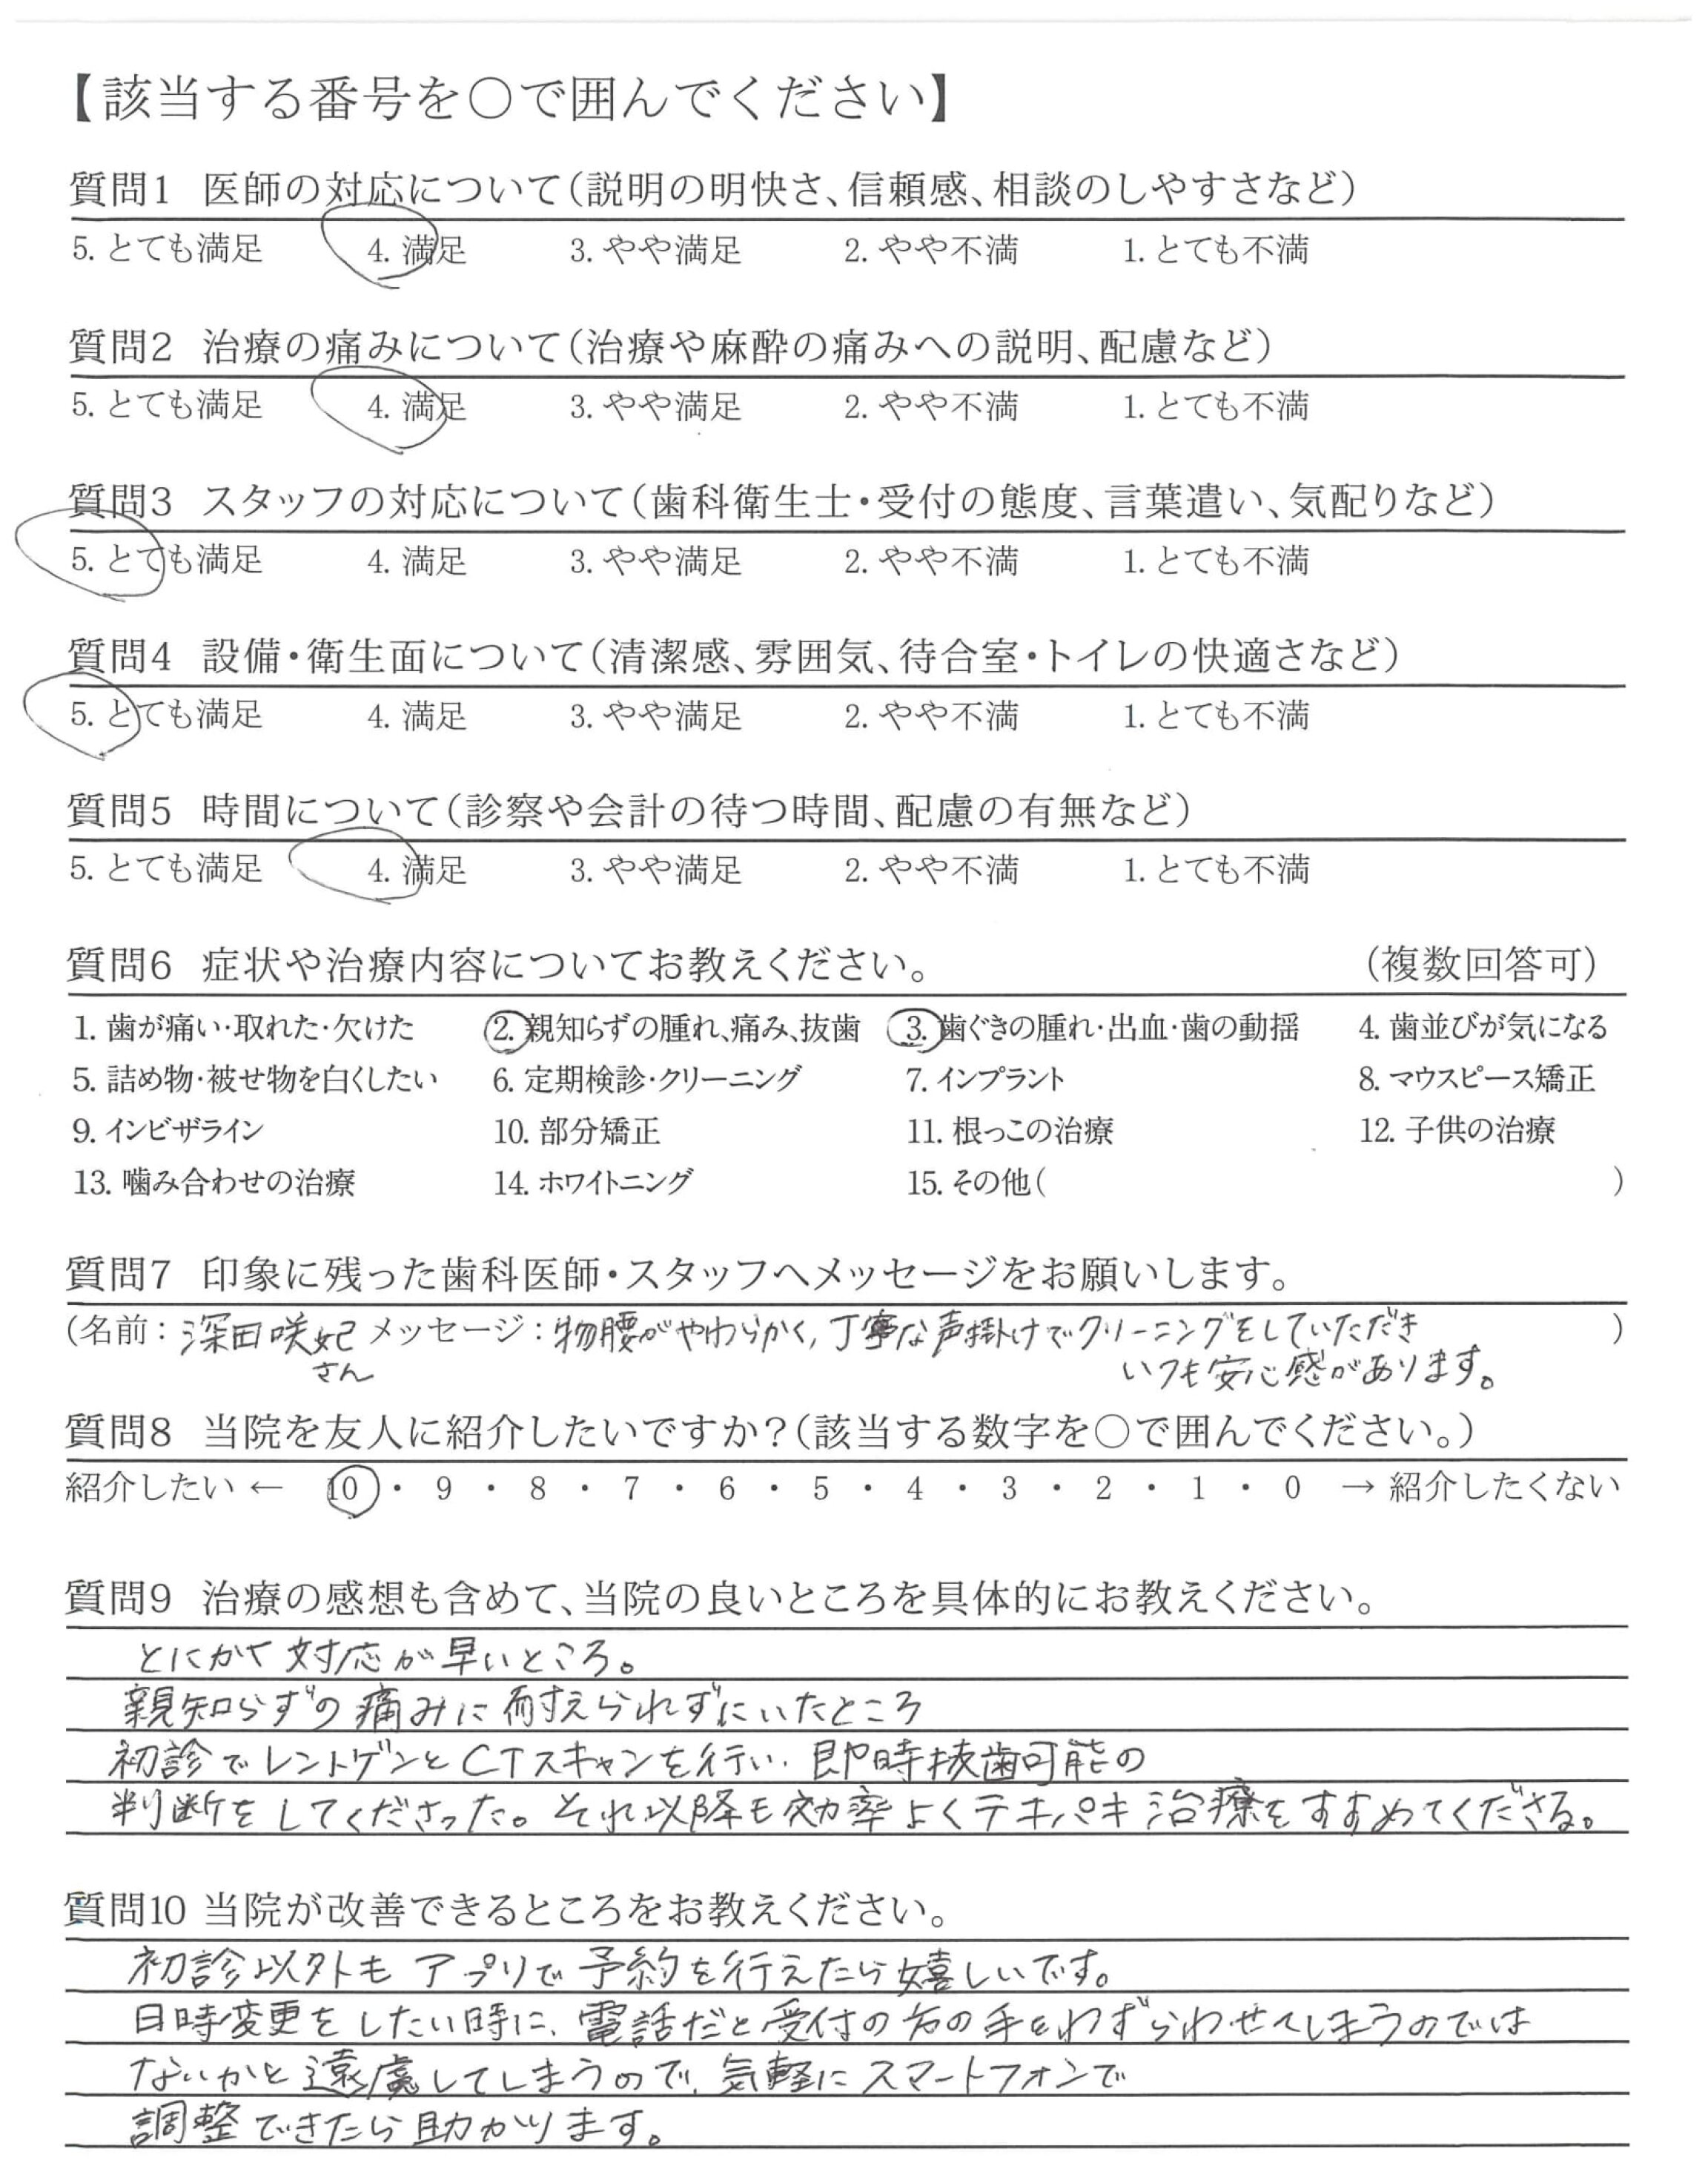 【該当する番号を〇で囲んでください】
質問1 医師の対応について(説明の明快さ、信頼感、相談のしやすさなど)
5. とても満足 4. 満足 3. やや満足 2. やや不満 1. とても不満
質問2 治療の痛みについて(治療や麻酔の痛みへの説明、配慮など)
5. とても満足 4. 満足 3. やや満足 2. やや不満 1. とても不満
質問3 スタッフの対応について(歯科衛生士・受付の態度、言葉遣い、気配りなど)
5. とても満足 4. 満足 3. やや満足 2. やや不満 1. とても不満
質問4 設備・衛生面について(清潔感、雰囲気、待合室・トイレの快適さなど)
5. とても満足 4. 満足 3. やや満足 2. やや不満 1. とても不満
質問5 時間について(診察や会計の待つ時間、配慮の有無など)
5. とても満足 4. 満足 3. やや満足 2. やや不満 1. とても不満
質問6 症状や治療内容についてお教えください。 (複数回答可)
1. 歯が痛い・取れた・欠けた 2. 親知らずの腫れ、痛み、抜歯 3. 歯ぐきの腫れ・出血・歯の動揺 4. 歯並びが気になる
5. 詰め物・被せ物を白くしたい 6. 定期検診・クリーニング 7. インプラント 8. マウスピース矯正
9. インビザライン 10. 部分矯正 11. 根っこの治療 12. 子供の治療
13. 噛み合わせの治療 14. ホワイトニング 15. その他( )
質問7 印象に残った歯科医師・スタッフへメッセージをお願いします。
(名前: 深田咲妃 メッセージ: 物腰がやわらかく、丁寧な声掛けでクリーニングをしていただき )
さん いつも安心感があります。
質問8 当院を友人に紹介したいですか?(該当する数字を〇で囲んでください。)
紹介したい ← 10 ・ 9 ・ 8 ・ 7 ・ 6 ・ 5 ・ 4 ・ 3 ・ 2 ・ 1 ・ 0 → 紹介したくない
質問9 治療の感想も含めて、当院の良いところを具体的にお教えください。
とにかく対応が早いところ。
親知らずの痛みに耐えられずにいたところ
初診でレントゲンとCTスキャンを行い、即時抜歯可能の
判断をしてくださった。それ以降も効率よくテキパキ治療をすすめてくださる。
質問10 当院が改善できるところをお教えください。
初診以外もアプリで予約を行えたら嬉しいです。
日時変更をしたい時に、電話だと受付の方の手をわずらわせてしまうのでは
ないかと遠慮してしまうので、気軽にスマートフォンで
調整できたら助かります。